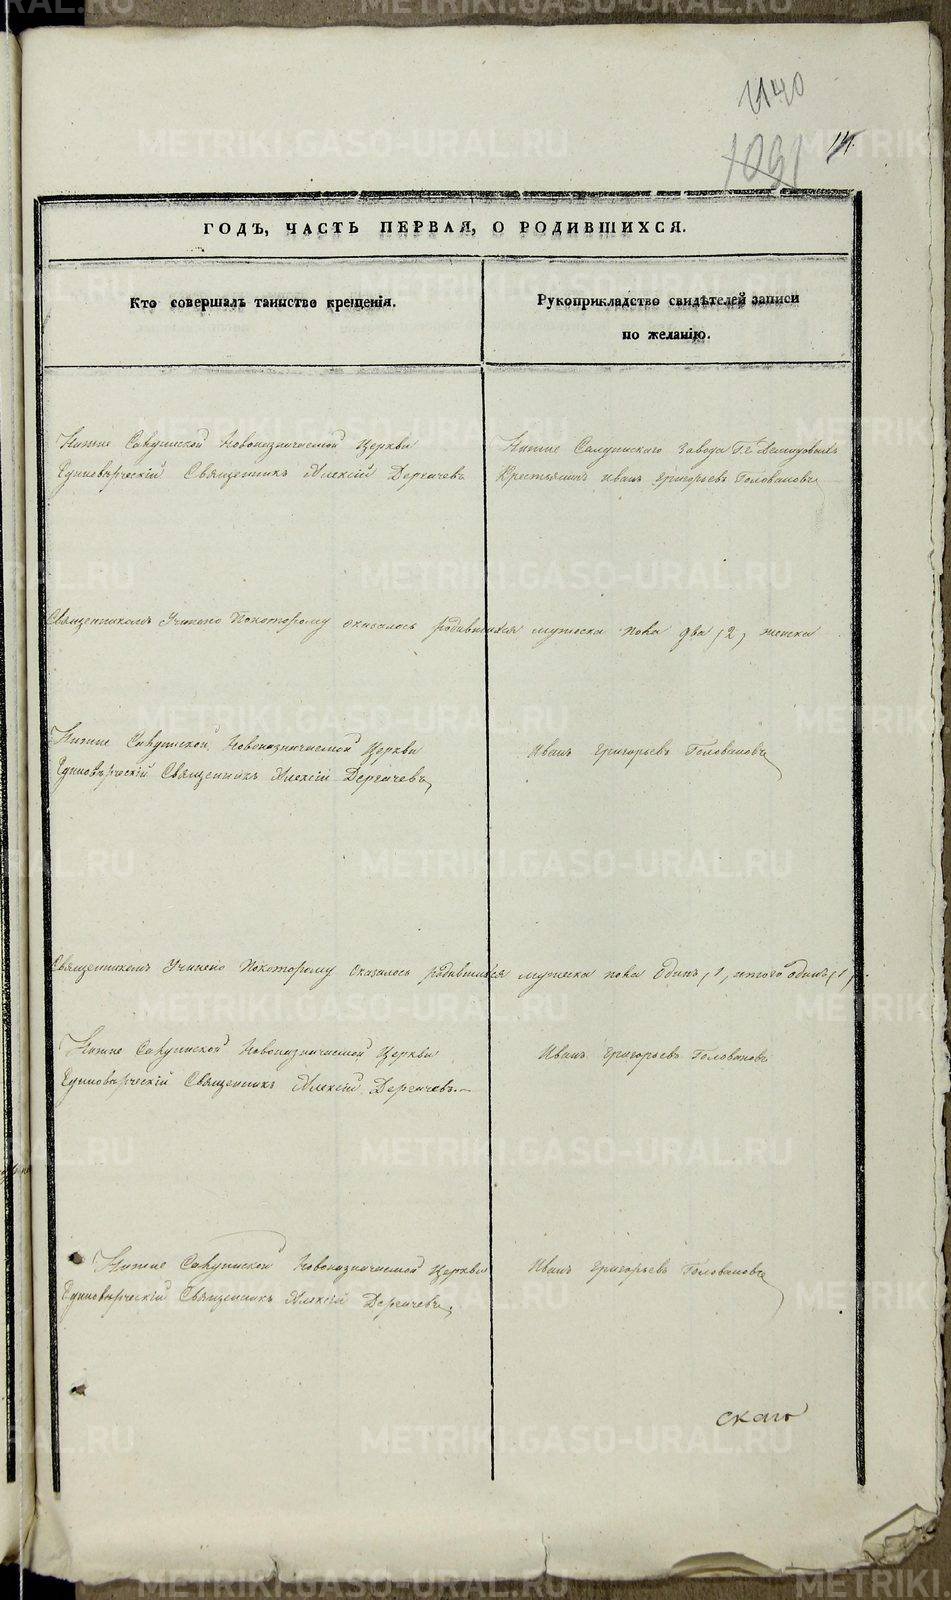 1140
1091
14.
ГОДЪ, ЧАСТЬ ПЕРВАЯ, О РОДИВШИХСЯ.
Кто совершалъ таинство крещенія.
Рукоприкладство свидѣтелей записи
по желанію.
Нижне Салдинской Новоназначаемой Церкви
Единовѣрческій Священникъ Алексій Дергачевъ
Нижне Салдинскаго Завода Гг. Демидовыхъ
Крестьянинъ Иванъ Григорьевъ Головановъ
Священникомъ Учинено Покоторому оказалось родившихся мужеска пола два, 2, женска
Нижне Салдинской Новоназначаемой Церкви
Единовѣрческій Священникъ Алексій Дергачевъ
Иванъ Григорьевъ Головановъ
Священникомъ Учинено Покоторому Оказалось родившихся мужеска пола Одинъ, 1, итого одинъ, 1,
Нижне Салдинской Новоназначаемой Церкви
Единовѣрческій Священникъ Алексій Дергачевъ
Иванъ Григорьевъ Головановъ
Нижне Салдинской Новоназначаемой Церкви
Единовѣрческій Священникъ Алексій Дергачевъ
Иванъ Григорьевъ Головановъ
скаго
METRIKI.GASO-URAL.RU